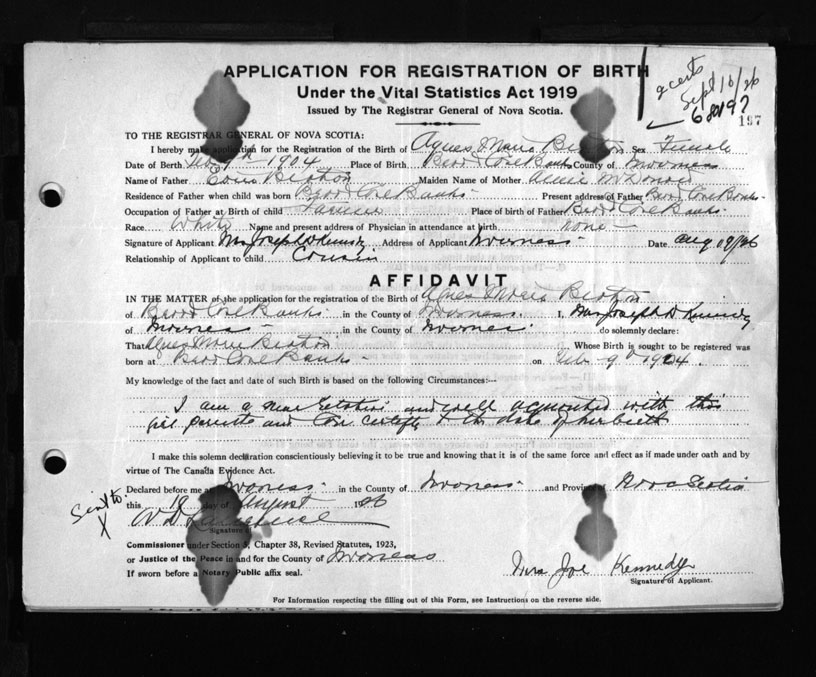 APPLICATION FOR REGISTRATION OF BIRTH
2 certs
Under the Vital Statistics Act 1919
Sept 16/26
Issued by The Registrar General of Nova Scotia.
197
TO THE REGISTRAR GENERAL OF NOVA SCOTIA:
I hereby make application for the Registration of the Birth of Agnes Marie Beaton Sex Female
Date of Birth Feb 9th 1904 Place of Birth Broad Cove Banks County of Inverness
Name of Father Beaton Maiden Name of Mother
Residence of Father when child was born Broad Cove Banks - Present address of Father Broad Cove Banks -
Occupation of Father at Birth of child Farmer Place of birth of Father Broad Cove Banks -
Race White Name and present address of Physician in attendance at birth none -
Signature of Applicant Mrs Joseph D Kennedy Address of Applicant Inverness - Date Aug 19/26
Relationship of Applicant to child Cousin
AFFIDAVIT
IN THE MATTER of the application for the registration of the Birth of Agnes Marie Beaton
of Broad Cove Banks in the County of Inverness. I, Mrs Joseph D Kennedy
of Inverness - in the County of Inverness - do solemnly declare:
That Agnes Marie Beaton Whose Birth is sought to be registered was
born at Broad Cove Banks - on Feb - 9th 1904.
My knowledge of the fact and date of such Birth is based on the following Circumstances:—
I am a near and well with this
girl parents and can certify to the date of her birth
I make this solemn declaration conscientiously believing it to be true and knowing that it is of the same force and effect as if made under oath and by
virtue of The Canada Evidence Act.
Declared before me at Inverness - in the County of Inverness - and Province of Nova Scotia
this 19 day of August 1926
Signature
Commissioner under Section 3, Chapter 38, Revised Statutes, 1923,
or Justice of the Peace in and for the County of Inverness
Mrs Joe Kennedy
If sworn before a Notary Public affix seal.
Signature of Applicant.
For Information respecting the filling out of this Form, see Instructions on the reverse side.